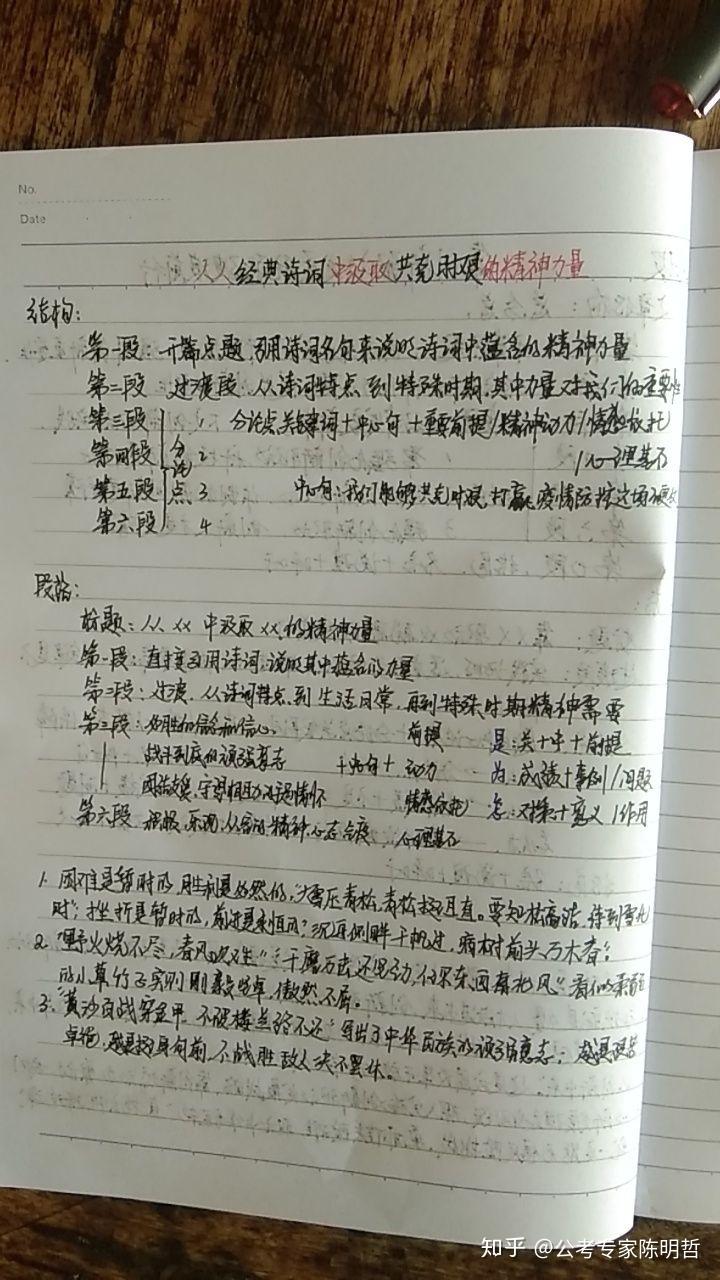 No.
Date
从经典诗词中汲取共克时艰的精神力量
结构:
第一段: 开篇点题, 引用诗词名句来说明诗词中蕴含的精神力量
第二段: 过渡段. 从诗词特点 到 特殊时期, 其中力量对我们的重要性
第三段 1 分论点关键词+中心句+重要前提/精神动力/情感依托
第四段 分论点 2 /心理基石
第五段 3 中心句: 我们能够共克时艰, 打赢 疫情防控这场硬仗
第六段 4
段落:
标题: 从 xx 中汲取 xx 的精神力量
第一段: 直接引用诗词, 说明其中蕴含的力量
第二段: 过渡. 从诗词特点 到 生活日常, 再到特殊时期精神需要
第三段: 必胜的信念和信心. 前提 是: 关+中+前提
战斗到底的顽强意志 +中心句+ 动力 为: 成绩+事例/问题
团结友爱, 守望相助 情怀 情感依托 怎: 对策+意义/作用
第六段 积极、乐观、从容的精神、心态 心理基石
1. 困难是暂时的, 胜利是必然的, "大雪压青松, 青松挺且直。要知松高洁, 待到雪化
时"; 挫折是暂时的, 前进是永恒的? 沉舟侧畔千帆过, 病树前头万木春";
2. "野火烧不尽, 春风吹又生" "千磨万击还坚劲, 任尔东西南北风" 看似柔弱
的小草竹子实则刚毅 卓, 傲然不屈。
3. "黄沙百战穿金甲, 不破楼兰终不还" 写出了中华民族的顽强意志; 越是艰苦
卓绝, 越是挺身向前, 不战胜敌人决不罢休。
知乎 @公考专家陈明哲